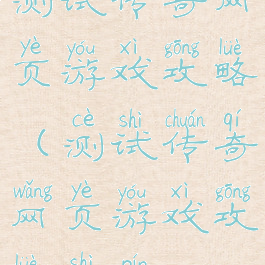 测试传奇网
yè yóu xì gōng lüè
页游戏攻略
cè shì chuán qí
（测试传奇
wǎng yè yóu xì gōng
网页游戏攻
lüè shì pín